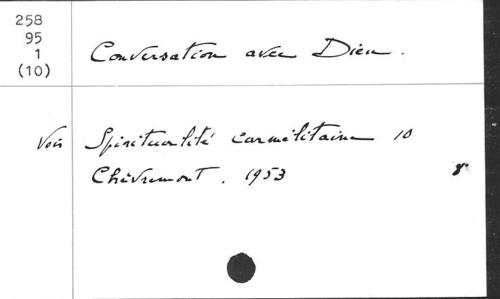 258
95
1
(10)
Conversation avec Dieu.
Voir Spiritualité carmélitaine 10
Chèvremont. 1953